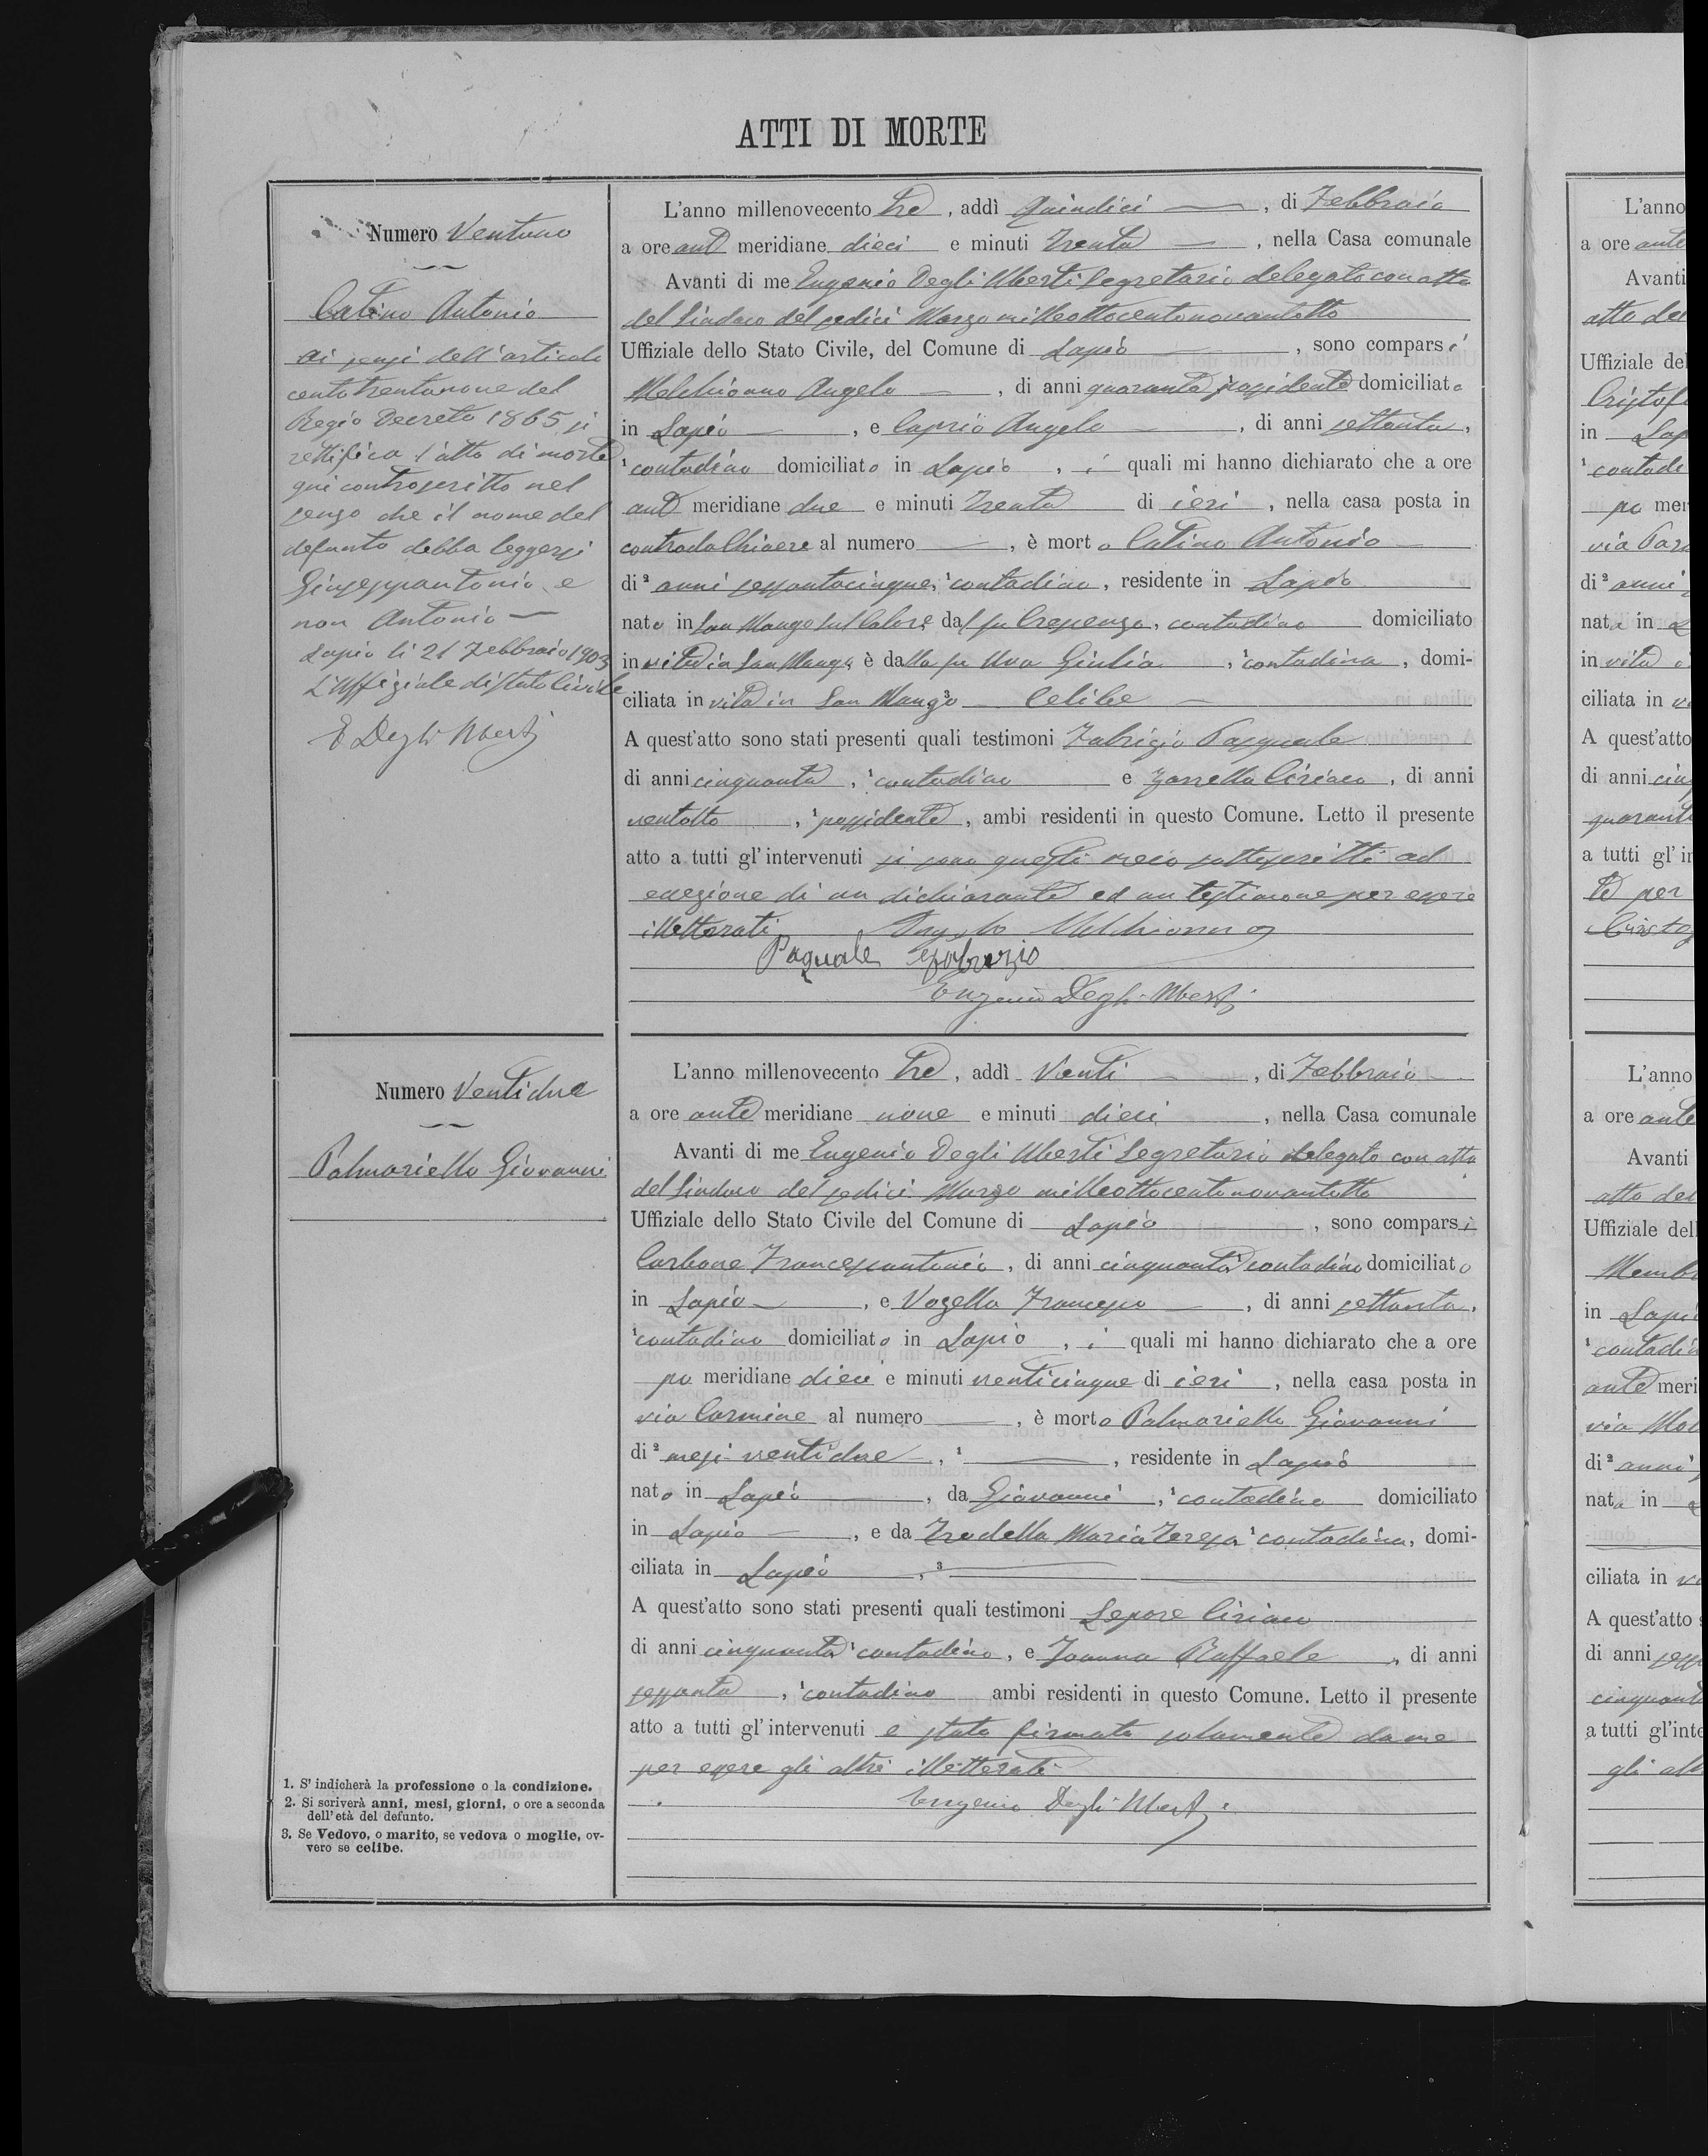 ATTI DI MORTE
Numero Ventuno
Catino Antonio
Ai sensi dell'articolo
centotrentanove del
Regio Decreto 1865 si
rettifica l'atto di morte
qui controscritto nel
senso che il nome del
defunto debba leggersi
Giuseppantonio e
non Antonio —
Lapio li 21 Febbraio 1903
L'Uffiziale di Stato Civile
E Degli Uberti
L'anno millenovecento tre, addì Quindici —, di Febbraio
a ore ant meridiane dieci e minuti trenta —, nella Casa comunale
Avanti di me Eugenio Degli Uberti Segretario delegato con atto
del Sindaco del sedici Marzo milleottocentonovantotto
Uffiziale dello Stato Civile, del Comune di Lapio —, sono comparsi
Melchionno Angelo —, di anni quaranta, possidente domiciliato
in Lapio —, e Caprio Angelo —, di anni settanta,
¹contadino domiciliato in Lapio, i quali mi hanno dichiarato che a ore
ant meridiane due e minuti trenta di ieri, nella casa posta in
contrada Chiaere al numero —, è morto Catino Antonio —
di² anni sessantacinque, ¹contadino, residente in Lapio
nato in San Mango sul Calore, dal fu Crescenzo, contadino domiciliato
in vita in San Mango, e dalla fu Uva Giulia, ¹contadina, domi-
ciliata in vita in San Mango ³ Celibe —
A quest'atto sono stati presenti quali testimoni Fabrizio Pasquale
di anni cinquanta, ¹contadino e Zarrella Ciriaco, di anni
ventotto, ¹possidente, ambi residenti in questo Comune. Letto il presente
atto a tutti gl'intervenuti si sono questi meco sottoscritti ad
eccezione di un dichiarante ed un testimone per essere
illetterati Angelo Melchionno
Pasquale Fabrizio
Eugenio Degli Uberti
Numero Ventidue
Palmariello Giovanni
L'anno millenovecento tre, addì Venti —, di Febbraio —
a ore ante meridiane nove e minuti dieci, nella Casa comunale
Avanti di me Eugenio Degli Uberti Segretario delegato con atto
del Sindaco del sedici Marzo milleottocentonovantotto
Uffiziale dello Stato Civile del Comune di Lapio, sono comparsi
Carbone Francescantonio, di anni cinquanta ¹contadino domiciliato
in Lapio —, e Vozella Francesco —, di anni settanta,
¹contadino domiciliato in Lapio, i quali mi hanno dichiarato che a ore
po meridiane dieci e minuti venticinque di ieri, nella casa posta in
via Carmine al numero —, è morto Palmariello Giovanni
di² mesi ventidue, ¹ —, residente in Lapio
nato in Lapio, da Giovanni, ¹contadino domiciliato
in Lapio —, e da Trodella Maria Teresa ¹contadina, domi-
ciliata in Lapio, ³ —
A quest'atto sono stati presenti quali testimoni Lepore Ciriaco
di anni cinquanta ¹contadino, e Ioanna Raffaele, di anni
sessanta, ¹contadino ambi residenti in questo Comune. Letto il presente
atto a tutti gl'intervenuti e stato firmato solamente da me
per essere gli altri illetterati
Eugenio Degli Uberti
1. S'indicherà la professione o la condizione.
2. Si scriverà anni, mesi, giorni, o ore a seconda
dell'età del defunto.
3. Se Vedovo, o marito, se vedova o moglie, ov-
vero se celibe.
L'anno
a ore ante
Avanti
atto del
Uffiziale del
Cristof
in Lap
¹contadi
po mer
via
di² anni
nata in L
in vita
ciliata in v
A quest'atto
di anni cin
quarant
a tutti gl'in
te per
Cristof
L'anno
a ore ante
Avanti
atto del
Uffiziale dell
in Lapi
¹contadi
ante meri
via
di² anni
nata in
ciliata in
A quest'atto
di anni sess
cinquant
a tutti gl'inte
gli alt